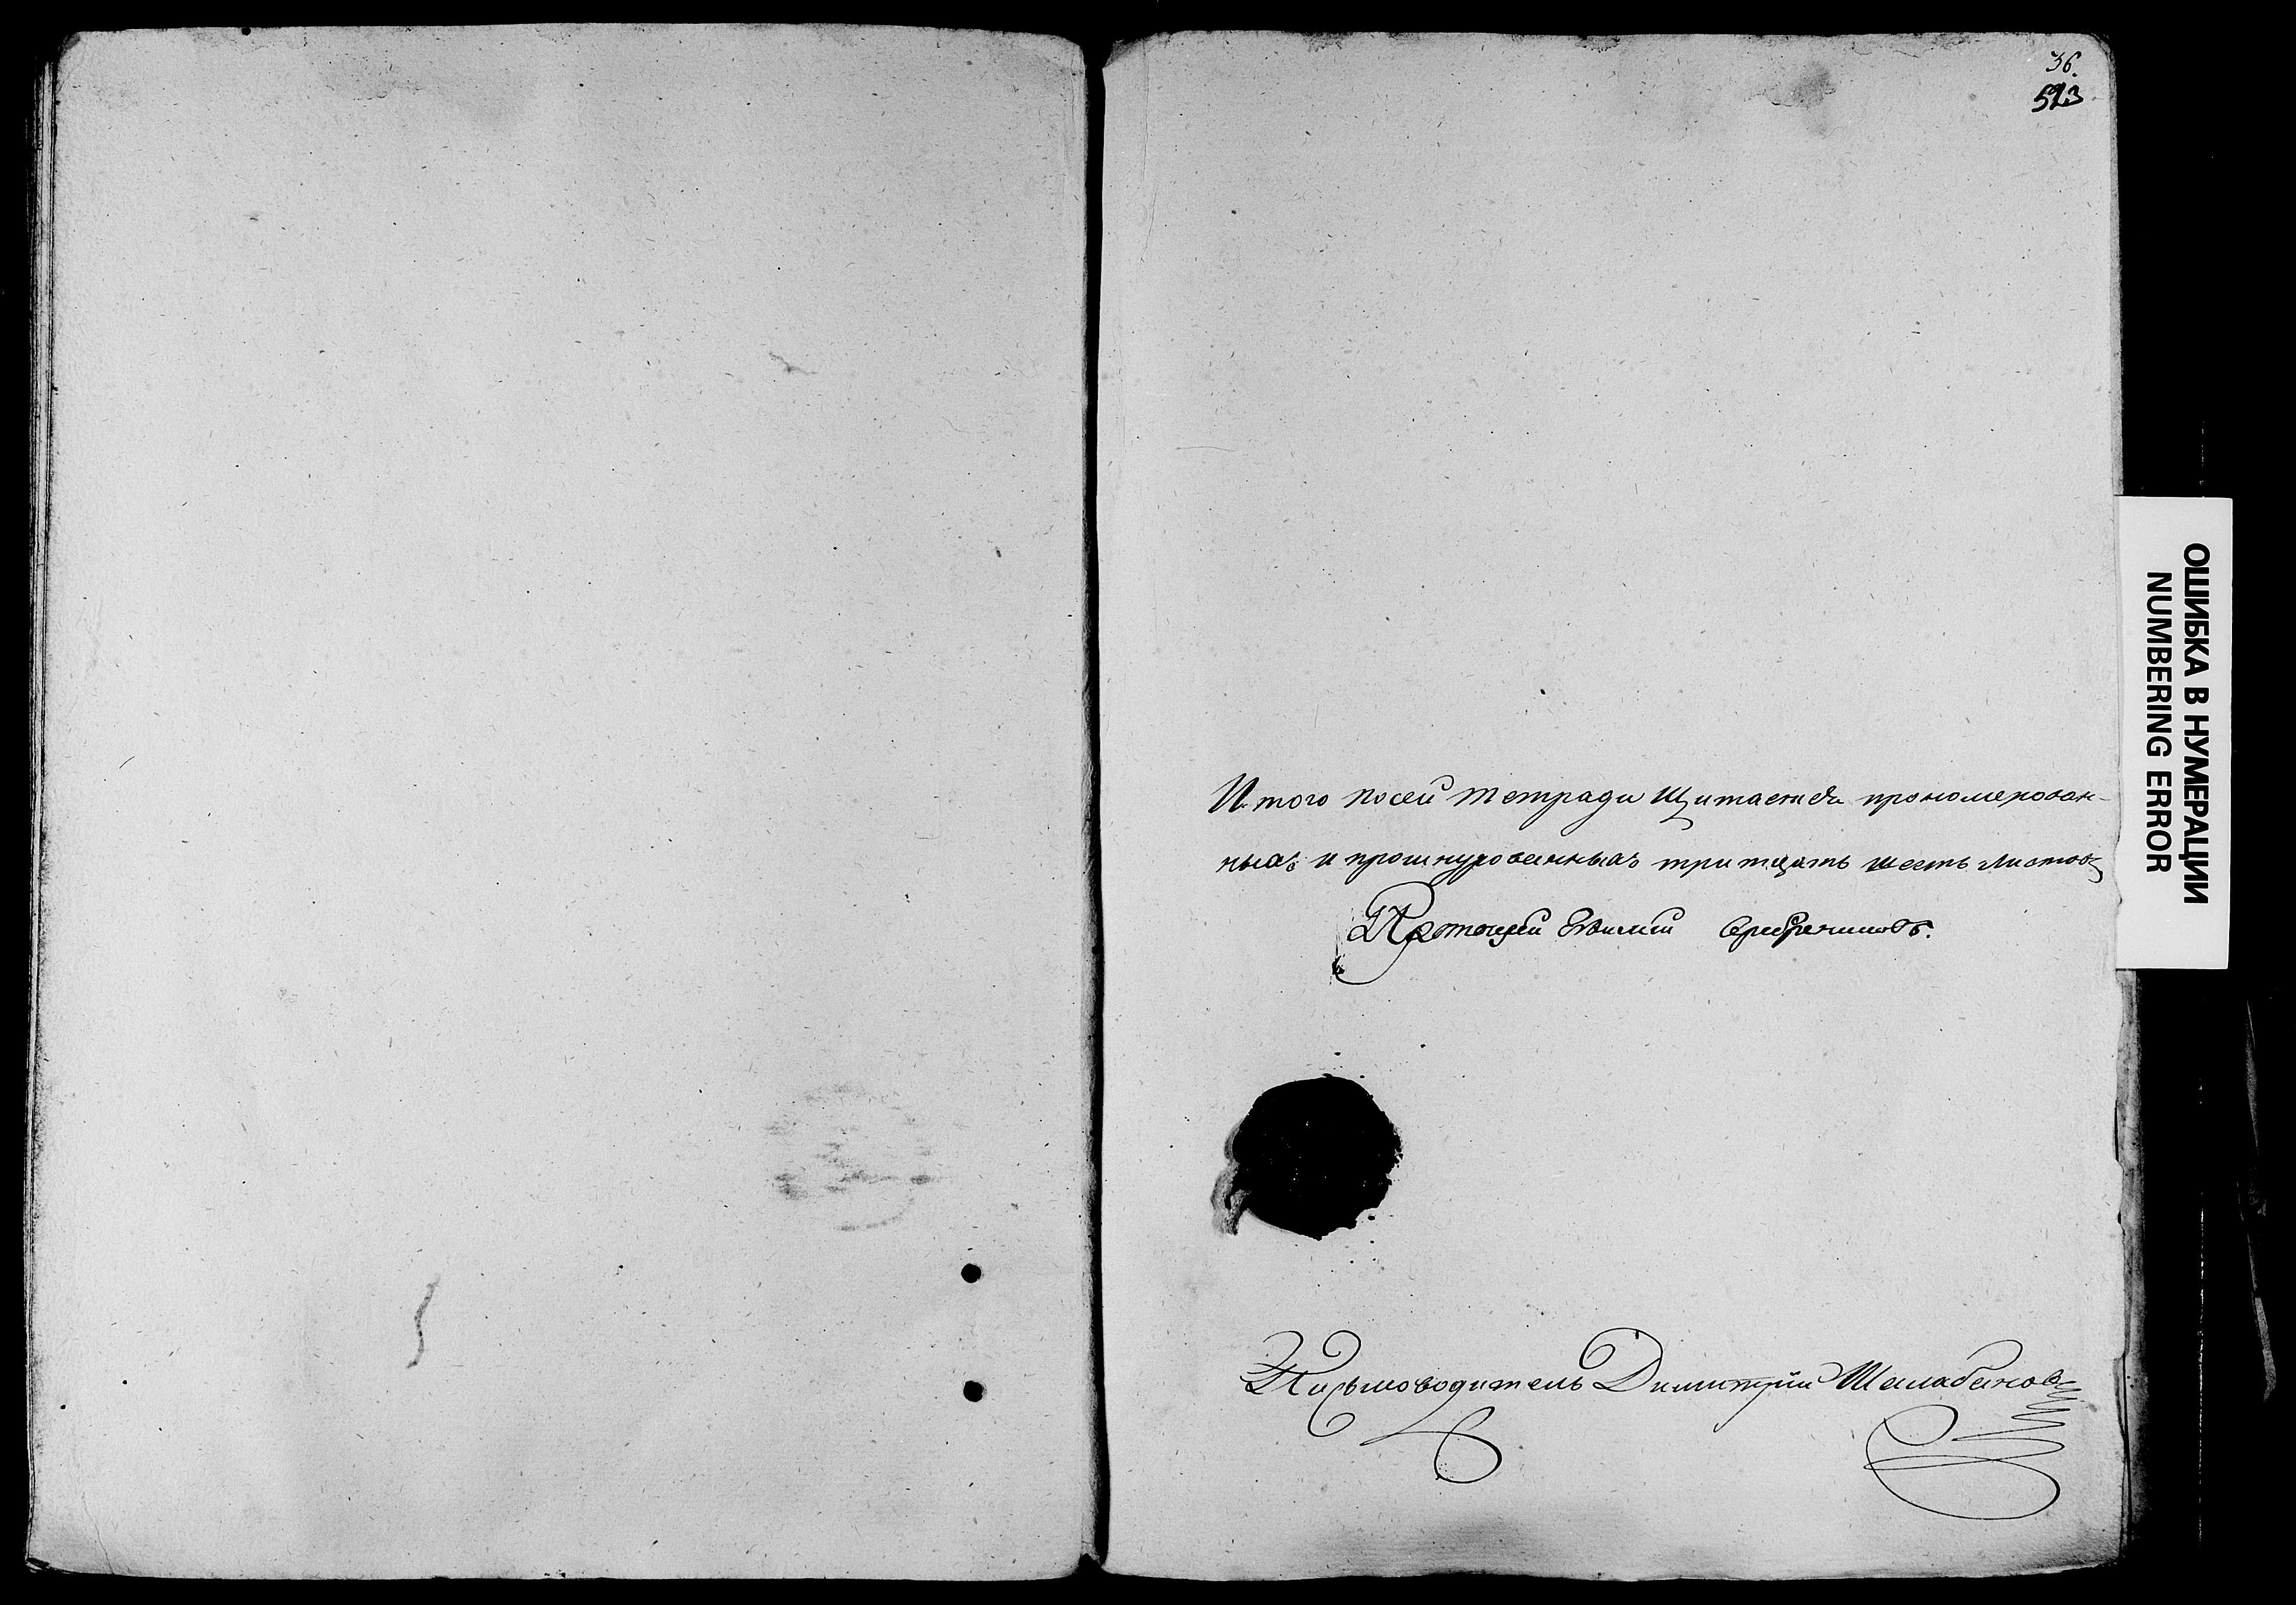 36.
523
Итого посей тетради щитается прономерован-
ныхъ и прошнурованныхъ тритцать шесть листовъ
Протоиерей Евфимий
Письмоводитель Димитрий Шалабановъ
ОШИБКА В НУМЕРАЦИИ
NUMBERING ERROR